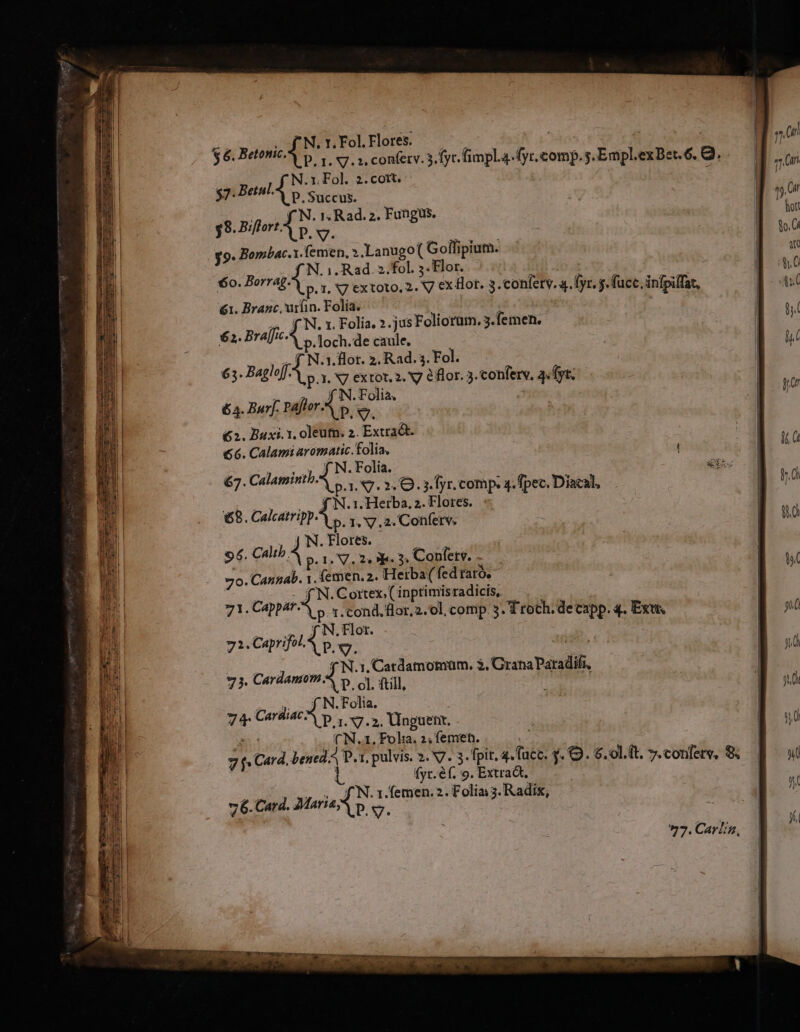 56. Betonic. { N. 1. Fol. Flores.
P. 1. 🜄. 2. conserv. 3. syr. simpl. 4. syr. comp. 5. Empl. ex Bet. 6. 🜔.
57. Betul. { N. 1. Fol. 2. cort.
P. Succus.
58. Bistort. { N. 1. Rad. 2. Fungus.
P. 🜄.
59. Bombac. 1. semen, 2. Lanugo ( Gossipium.
60. Borrag. { N. 1. Rad. 2. fol. 3. Flor.
p. 1. 🜄 ex toto, 2. 🜄 ex flor. 3. conserv. 4. syr. 5. succ. inspissat.
61. Branc. ursin. Folia.
62. Brassic. { N. 1. Folia. 2. jus Foliorum. 3. semen.
p. loch. de caule.
63. Bagloss. { N. 1. flor. 2. Rad. 3. Fol.
p. 1. 🜄 ex tot. 2. 🜄 è flor. 3. conserv. 4. syr.
64. Burs. Pastor. { N. Folia.
P. 🜄.
62. Buxi. 1. oleum. 2. Extract.
66. Calami aromatic. folia.
67. Calaminth. { N. Folia.
p. 1. 🜄. 2. 🜔. 3. syr. comp. 4. spec. Diacal.
68. Calcatripp. { N. 1. Herba, 2. Flores.
p. 1. 🜄. 2. Conserv.
96. Calth. { N. Flores.
p. 1. 🜄. 2. 3. Conserv.
70. Cannab. 1. semen. 2. Herba ( sed raro.
71. Cappar. { N. Cortex, ( inprimis radicis,
p. 1. cond. flor, 2. ol. comp 3. Troch. de capp. 4. Extr.
72. Caprifol. { N. Flor.
P. 🜄.
73. Cardamom. { N. 1. Cardamomum. 2. Grana Paradisi,
P. ol. still,
74. Cardiac. { N. Folia.
P. 1. 🜄. 2. Unguent.
75. Card. bened. { N. 1. Folia. 2. semen.
P. 1. pulvis. 2. 🜄. 3. spir. 4. succ. 5. 🜔. 6. ol. st. 7. conserv. 8.
syr. è s. 9. Extract.
76. Card. Mariæ, { N. 1. semen. 2. Folia 3. Radix,
P. 🜄.
77. Carlin,